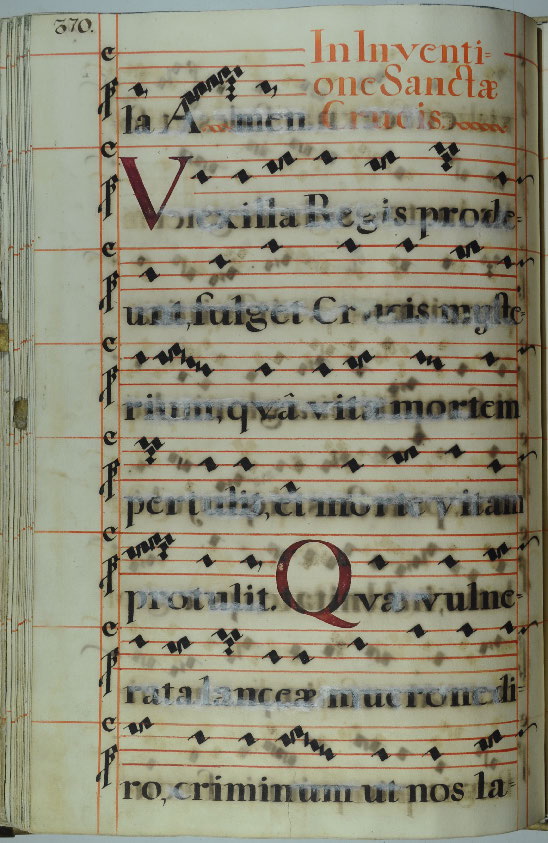 370.
In Inventi-
one Sanctæ
la Amen. Crucis.
Vexilla Regis prode-
unt, fulget Crucis myste-
rium, qvâ vita mortem
pertulit, et morte vitam
protulit. Qvæ vulne-
rata lanceæ mucrone di-
ro, criminum ut nos la-